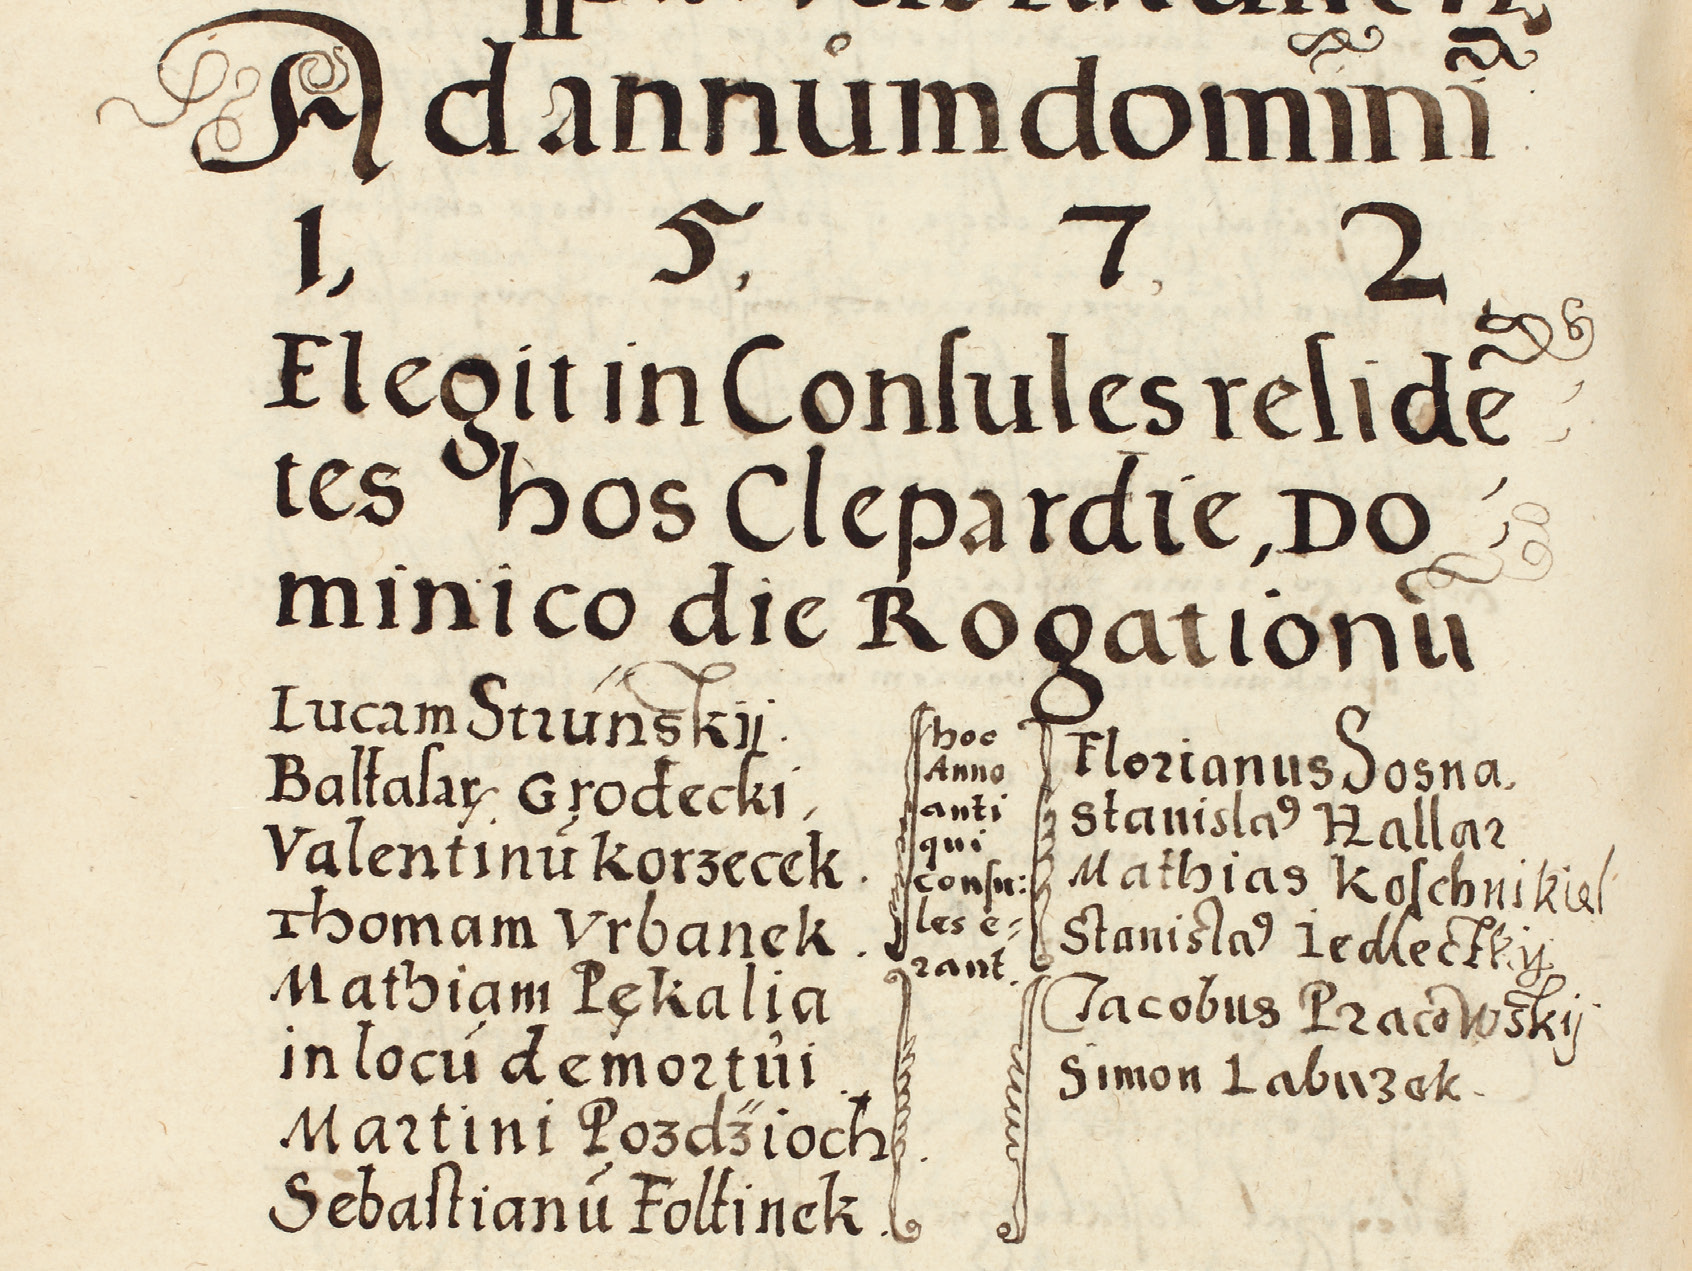 Ad annům domini
1, 5, 7, 2
Elegit in Conſules reſidẽ
tes hos Clepardie, Do
minico die Rogationũ
Lucam Strúnskij.
Baltaſar Grodecki,
Valentinú korzecek.
Thomam Vrbanek.
Mathiam Pękalia
in locú demortůi
Martini Pozdzioch.
Sebaſtianú Foltinek.
hoc
Anno
anti
qui
conſu:
les e-
rant.
Florianus Sosna.
Stanislaꝰ Hallar
Mathias Koſchnikiel
Stanislaꝰ Iedlectkij
Jacobus Pracowskij
Simon Labuzek.